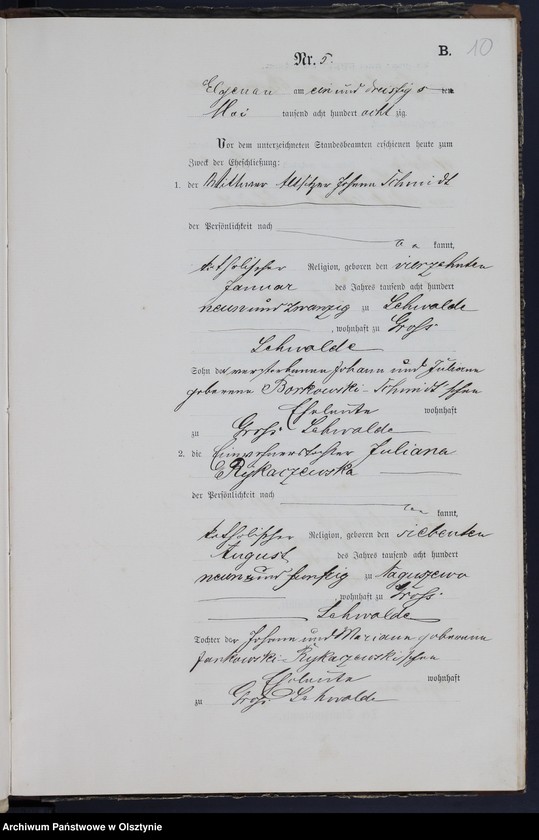 B. 10
Nr. 5.
Elgenau am ein und dreißigsten
Mai tausend acht hundert achtzig.
Vor dem unterzeichneten Standesbeamten erschienen heute zum
Zweck der Eheschließung:
1. der Wittwer Altsitzer Johann Schmidt
der Persönlichkeit nach
kannt,
katholischer Religion, geboren den vierzehnten
Januar des Jahres tausend acht hundert
neun und zwanzig zu Lehwalde
, wohnhaft zu Groß
Lehwalde
Sohn der verstorbenen Johann und Juliana
geborene Borkowski-Schmidt'schen
Eheleute wohnhaft
zu Groß Lehwalde
2. die Einwohnerstochter Juliana
Rykaczewska
der Persönlichkeit nach
kannt,
katholischer Religion, geboren den siebenten
August des Jahres tausend acht hundert
neun und fünfzig zu Naguszewo
, wohnhaft zu Groß
Lehwalde
Tochter der Johann und Mariana geborene
Jankowski-Rykaczewskischen
Eheleute wohnhaft
zu Groß Lehwalde
Archiwum Państwowe w Olsztynie